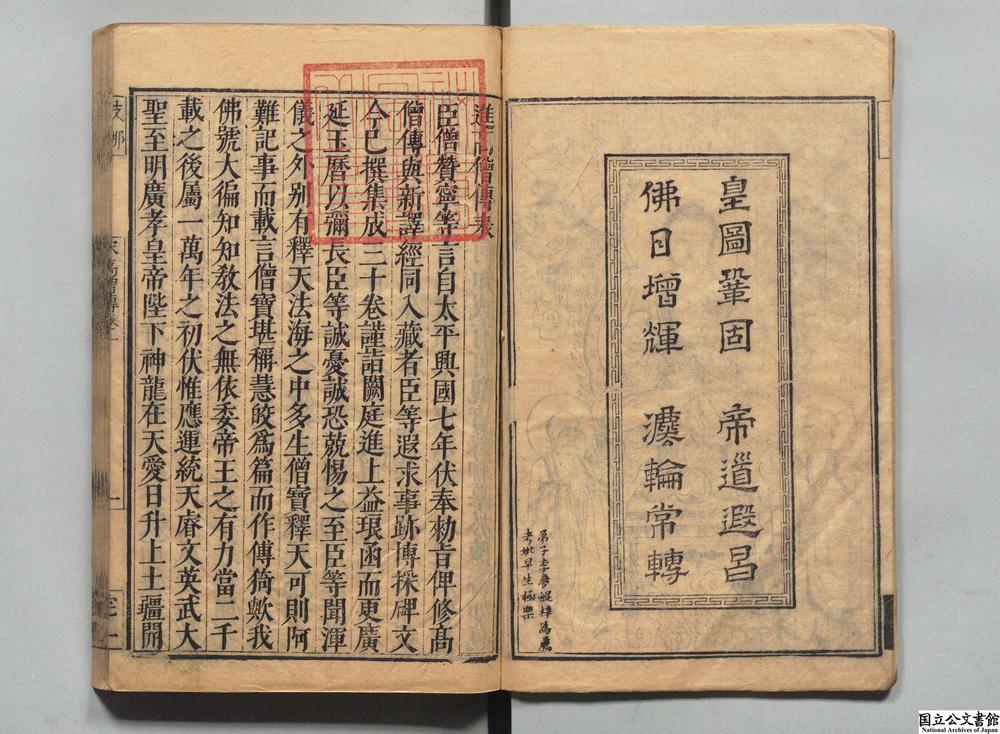 皇圖鞏固　帝道遐昌
佛日增輝　灋輪常轉
弟子李
考妣早生極樂
進高僧傳表
臣僧贊寧等言自太平興國七年伏奉勑旨俾修髙
僧傳與新譯經同入藏者臣等遐求事跡博採碑文
今已撰集成三十卷謹詣闕庭進上益琅函而更廣
延玉曆以彌長臣等誠憂誠恐兢惕之至臣等聞渾
儀之外别有釋天法海之中多生僧寶釋天可則阿
難記事而載言僧寶堪稱慧皎爲篇而作傳猗歟我
佛號大徧知知教法之無依委帝王之有力當二千
載之後屬一萬年之初伏惟應運統天睿文英武大
聖至明廣孝皇帝陛下神龍在天愛日升上土疆開
宋高僧傳
国立公文書館
National Archives of Japan